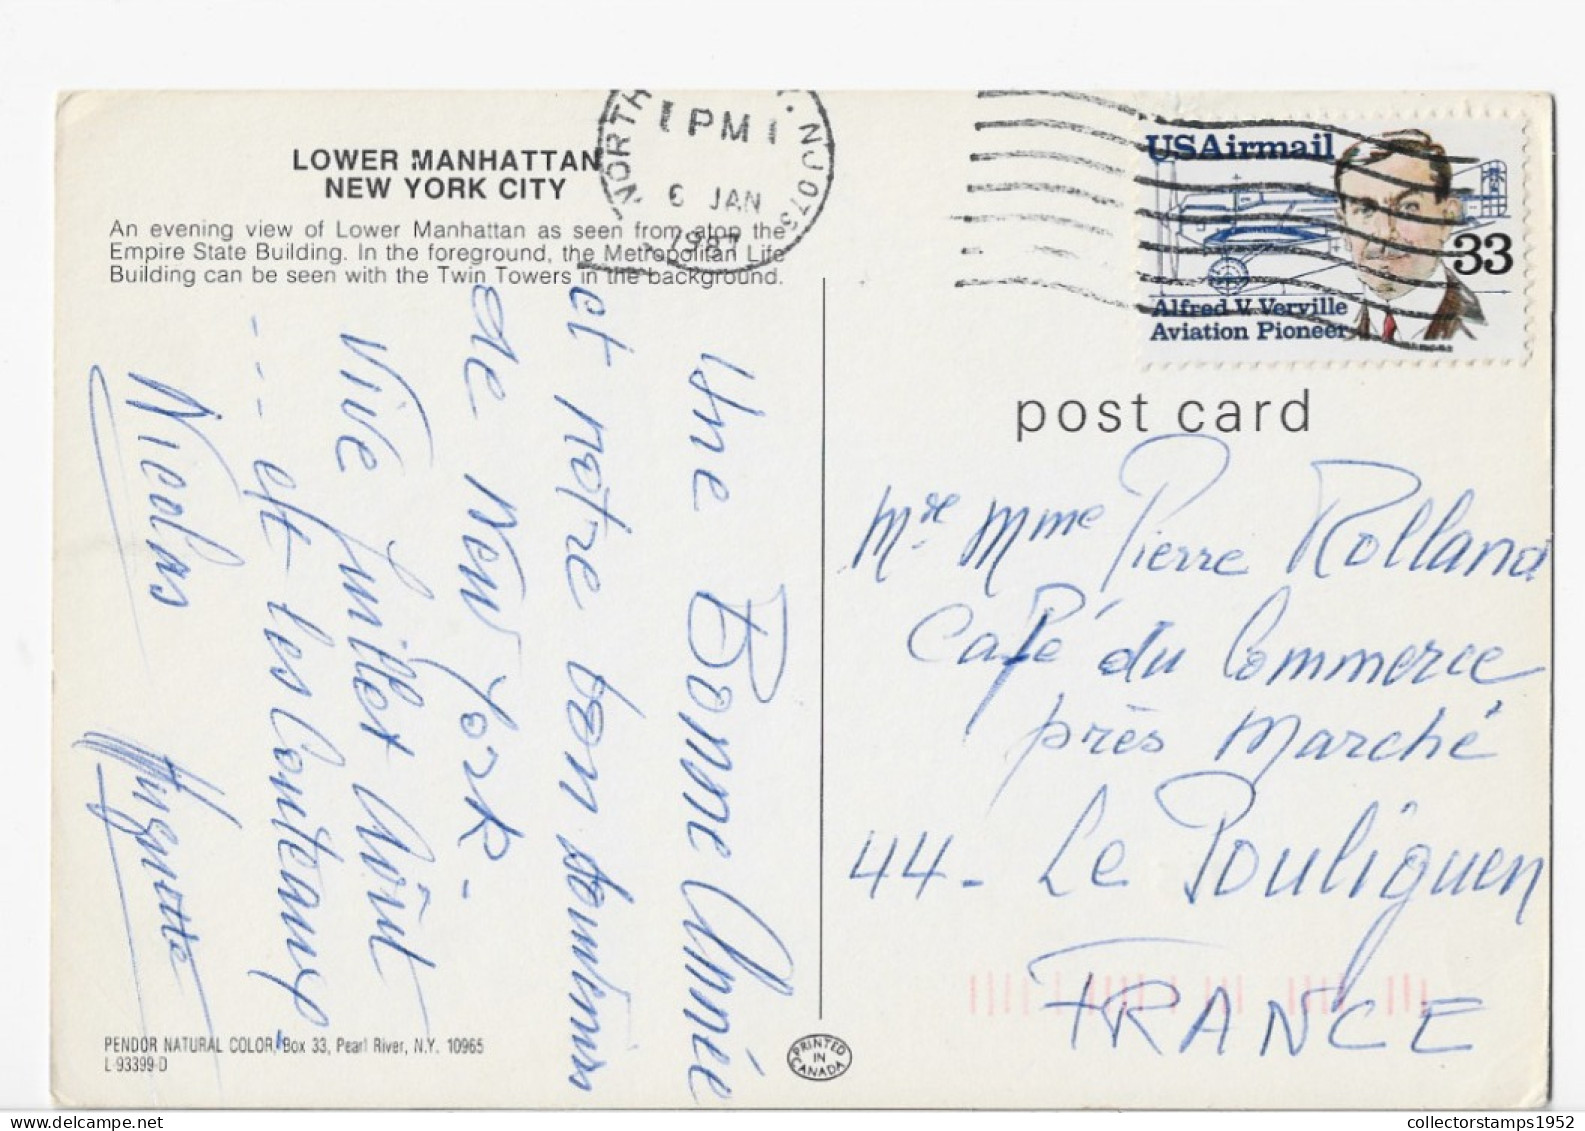 LOWER MANHATTAN
NEW YORK CITY
An evening view of Lower Manhattan as seen from atop the
Empire State Building. In the foreground, the Metropolitan Life
Building can be seen with the Twin Towers in the background.
NORTH NJ 073
PM
6 JAN
1987
USAirmail
33
Alfred V. Verville
Aviation Pioneer
post card
Une Bonne Année
et notre bon souvenir
de New York -
Vive Juillet Août
--- et les Contemp
Nicolas Huguette
Mr. Mme Pierre Rolland
Café du Commerce
près Marché
44 - Le Pouliguen
FRANCE
PENDOR NATURAL COLOR, Box 33, Pearl River, N.Y. 10965
L-93399-D
PRINTED
IN
CANADA
collectorstamps1952